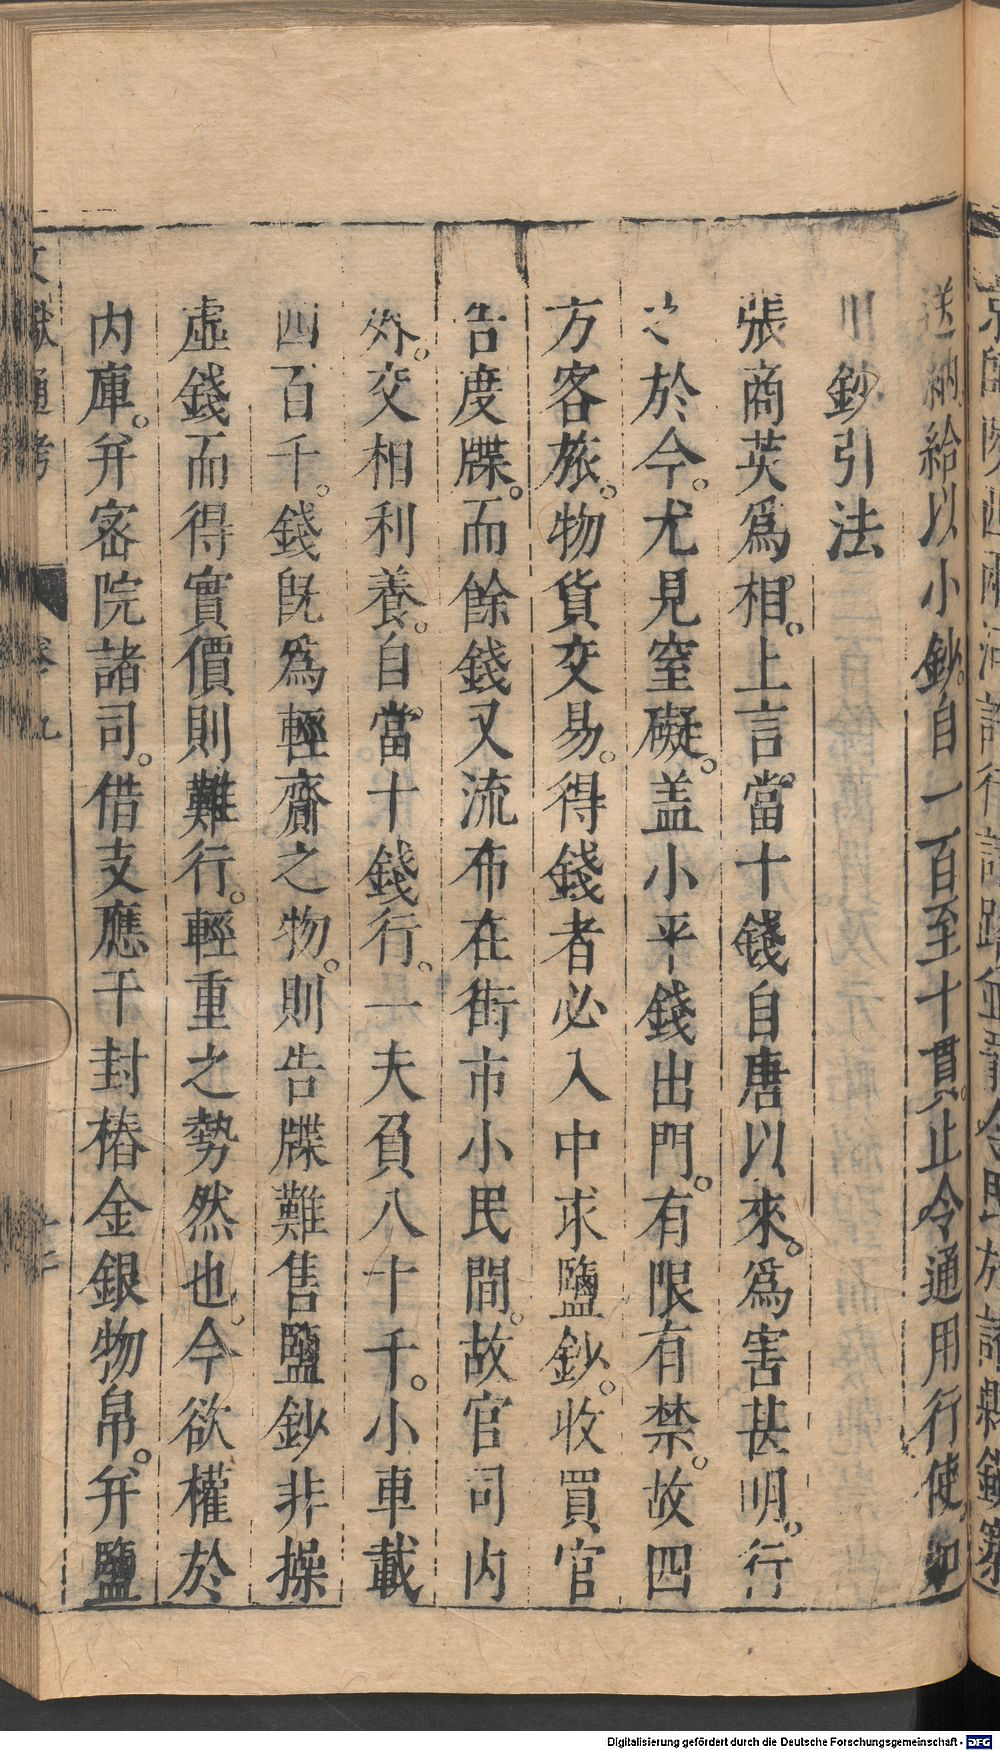 送納。給以小鈔。自一百至十貫。止令通用行使。如
川鈔引法
張商英爲相。上言。當十錢自唐以來。爲害甚明。行
之於今。尤見窒礙。盖小平錢出門。有限有禁。故四
方客旅。物貨交易。得錢者必入中求鹽鈔。收買官
告度牒。而餘錢又流布在街市小民間。故官司内
外。交相利養。自當十錢行。一夫負八十千。小車載
四百千。錢旣爲輕齎之物。則告牒難售鹽鈔非操
虛錢而得實價則難行。輕重之勢然也。今欲權於
内庫。并密院諸司。借支應干封樁金銀物帛。并鹽
文獻通考 卷九
Digitalisierung gefördert durch die Deutsche Forschungsgemeinschaft - DFG